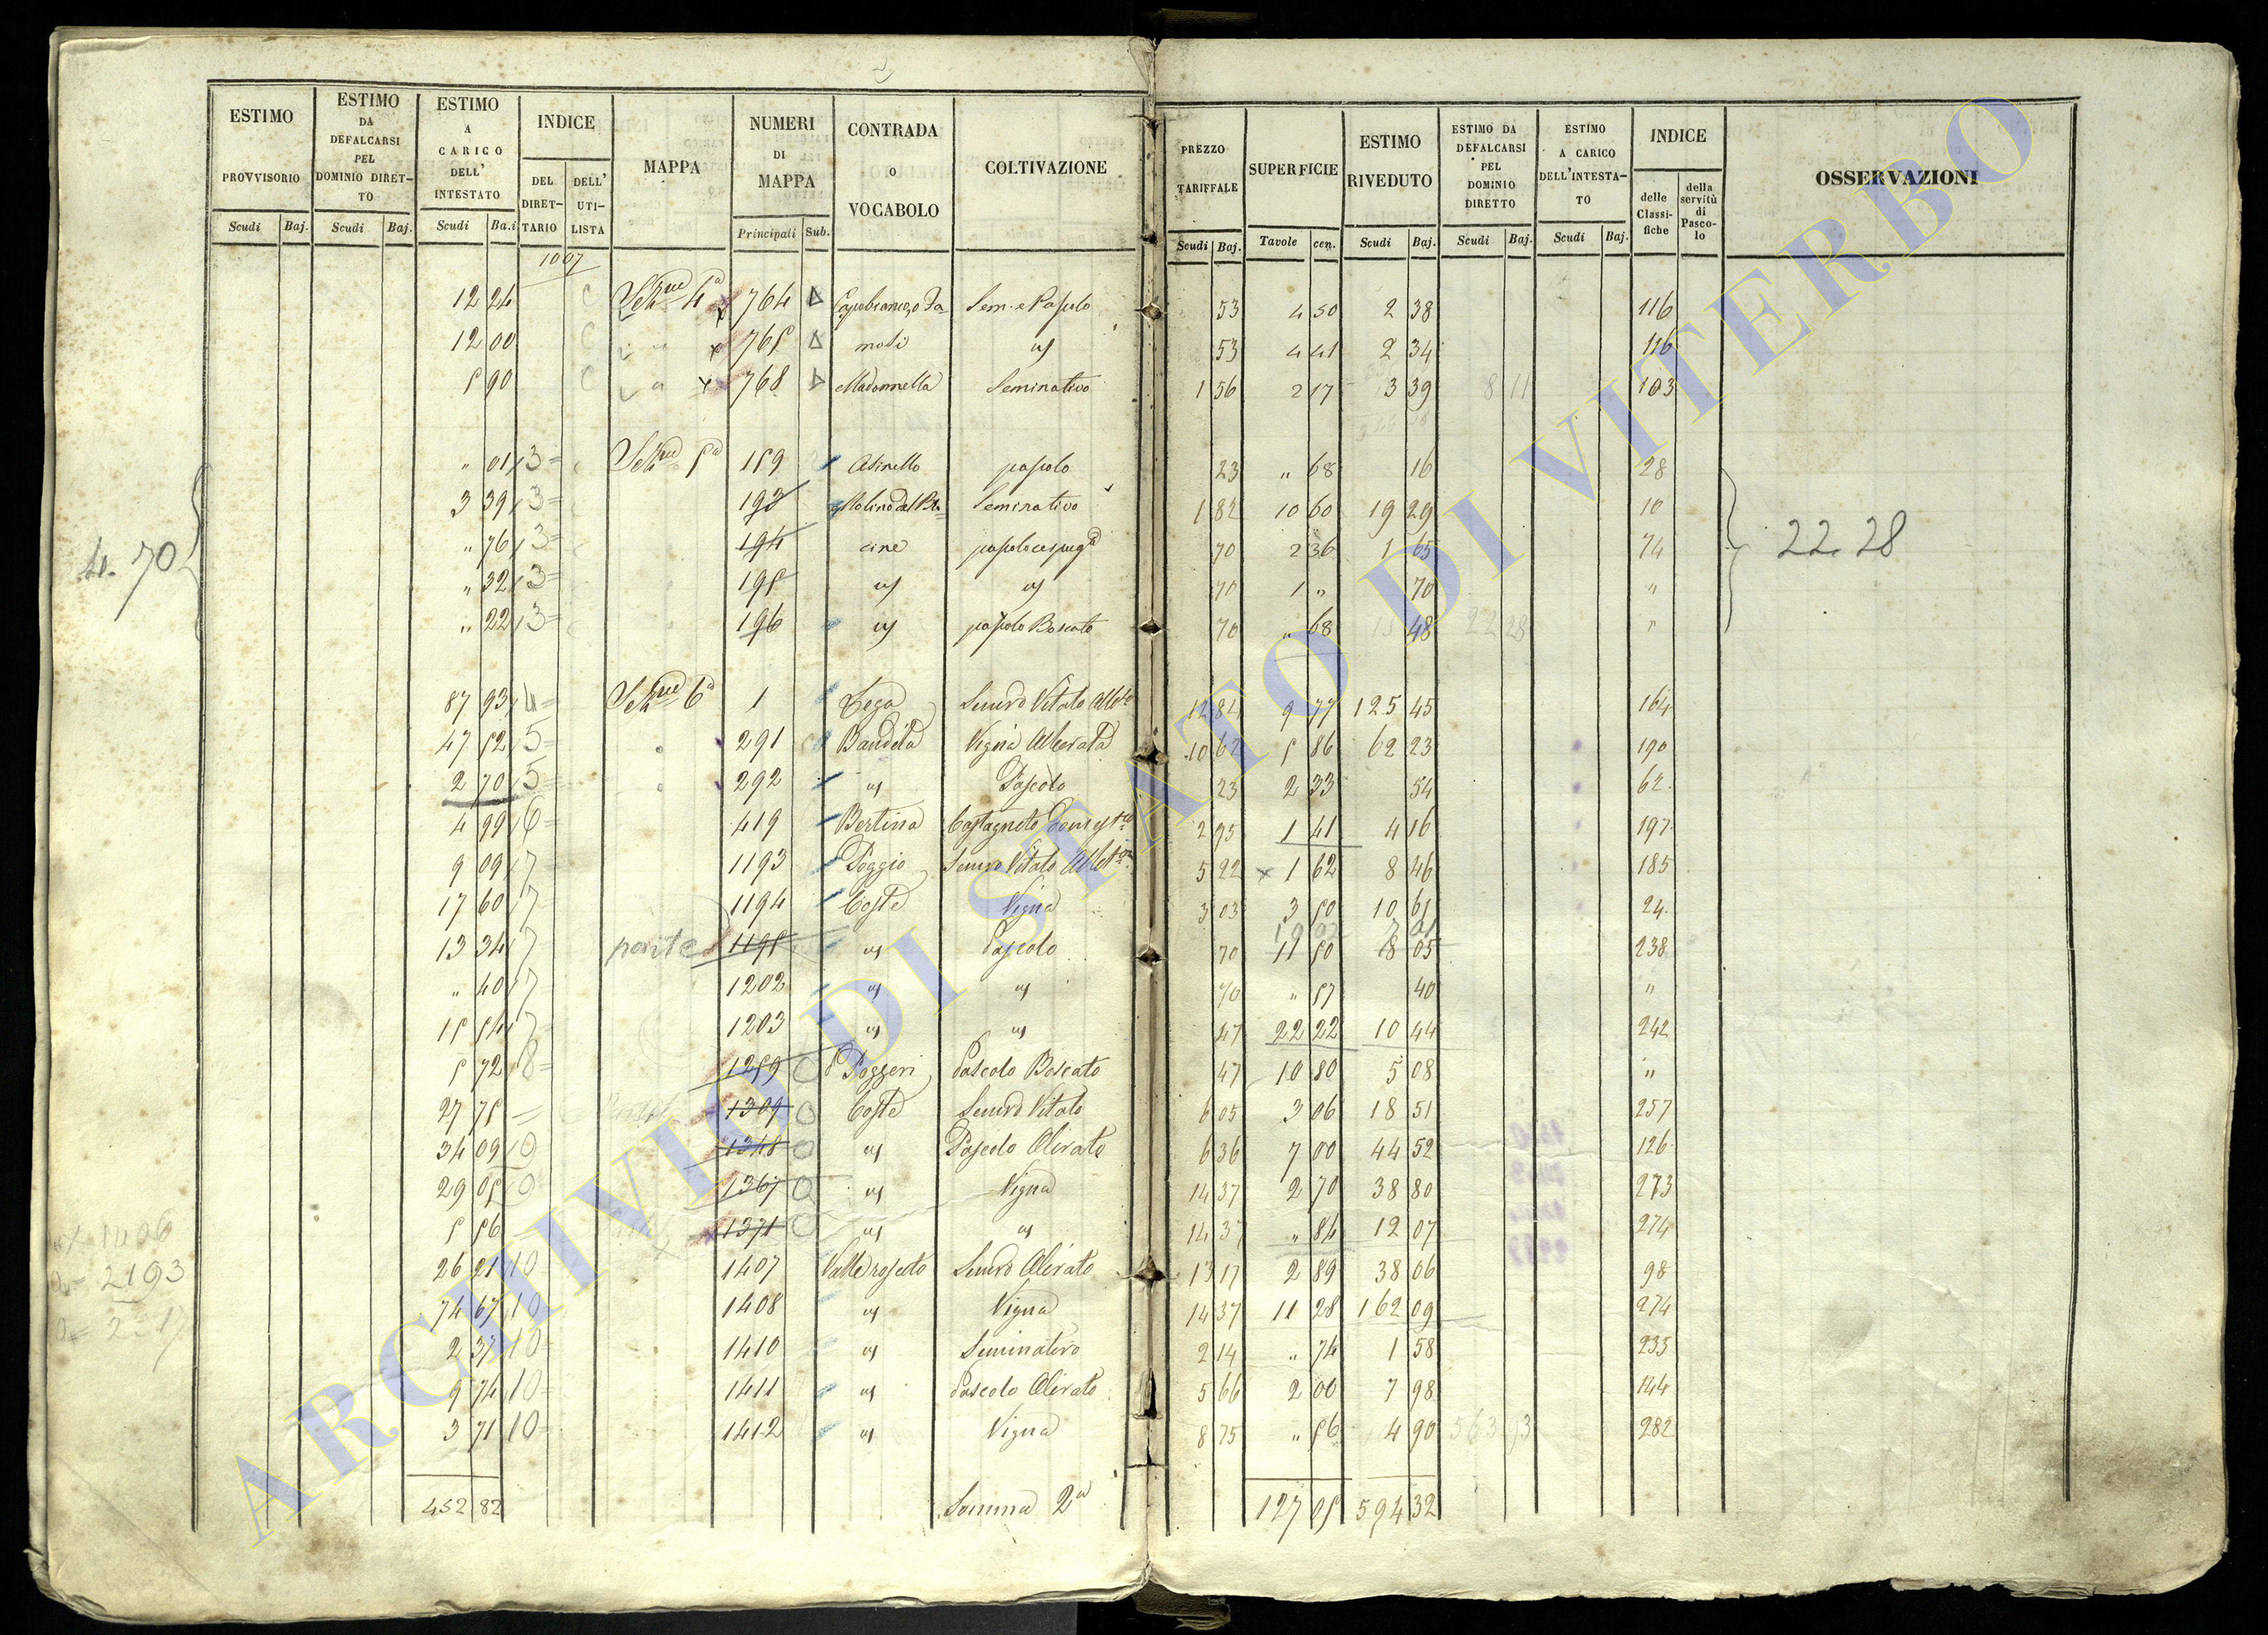 ESTIMO PROVVISORIO | ESTIMO DA DEFALCARSI PEL DOMINIO DIRETTO | ESTIMO A CARICO DELL' INTESTATO | INDICE | MAPPA | NUMERI DI MAPPA | CONTRADA O VOCABOLO | COLTIVAZIONE | PREZZO TARIFFALE | SUPERFICIE | ESTIMO RIVEDUTO | ESTIMO DA DEFALCARSI PEL DOMINIO DIRETTO | ESTIMO A CARICO DELL'INTESTATO | INDICE | OSSERVAZIONI
DEL DIRETTARIO | DELL' UTILISTA | delle Classifiche | della servitù di Pascolo
Scudi | Baj. | Scudi | Baj. | Scudi | Ba.i | Principali | Sub. | Scudi | Baj. | Tavole | cen. | Scudi | Baj. | Scudi | Baj. | Scudi | Baj.
1007
12 24 | 4a | 764 | Sem. e Pascolo | 53 | 4 50 | 2 38 | 116
12 00 | 765 | 53 | 4 41 | 2 34 | 116
5 90 | 768 | Madonnella | Seminativo | 1 56 | 2 17 | 3 39 | 8 11 | 103
" 01 | 3 | 5a | 159 | Asinello | pascolo | 23 | " 68 | 16 | 28
3 39 | 3 | 193 | Seminativo | 1 82 | 10 60 | 19 29 | 10
" 76 | 3 | 194 | 70 | 2 36 | 1 65 | 74
4.70 | 22.28
" 32 | 3 | 195 | 70 | 1 " | 70 | "
" 22 | 3 | 196 | pascolo Boscato | 70 | " 68 | 48 | 22 28 | "
87 93 | 4 | 6a | 1 | 12 84 | 9 77 | 125 45 | 164
47 52 | 5 | 291 | Bandita | Vigna Alberata | 10 62 | 5 86 | 62 23 | 190
2 70 | 5 | 292 | Pascolo | 23 | 2 33 | 54 | 62
4 99 | 6 | 419 | Bertina | 2 95 | 1 41 | 4 16 | 197
9 09 | 7 | 1193 | Poggio | 5 22 | 1 62 | 8 46 | 185
17 60 | 7 | 1194 | Coste | Vigna | 3 03 | 3 50 | 10 61 | 24
13 34 | 7 | 1195 | Pascolo | 70 | 11 50 | 8 05 | 238
" 40 | 7 | 1202 | 70 | " 57 | 40 | "
15 54 | 7 | 1203 | 47 | 22 22 | 10 44 | 242
5 72 | 8 | 1259 | Poggeri | Pascolo Boscato | 47 | 10 80 | 5 08 | "
27 75 | 1309 | Coste | Semvo Vitato | 6 05 | 3 06 | 18 51 | 257
34 09 | 1348 | Pascolo Olivato | 6 36 | 7 00 | 44 52 | 126
29 05 | 1367 | Vigna | 14 37 | 2 70 | 38 80 | 273
5 56 | 1371 | 14 37 | " 84 | 12 07 | 274
26 21 | 10 | 1407 | Semvo Olivato | 13 17 | 2 89 | 38 06 | 98
2193
74 67 | 10 | 1408 | Vigna | 14 37 | 11 28 | 162 09 | 274
2 37 | 10 | 1410 | Seminativo | 2 14 | " 74 | 1 58 | 235
9 74 | 10 | 1411 | Pascolo Olivato | 5 66 | 2 00 | 7 98 | 144
3 71 | 10 | 1412 | Vigna | 8 75 | " 56 | 4 90 | 282
452 82 | Somma 2a | 127 05 | 594 32
ARCHIVIO DI STATO DI VITERBO